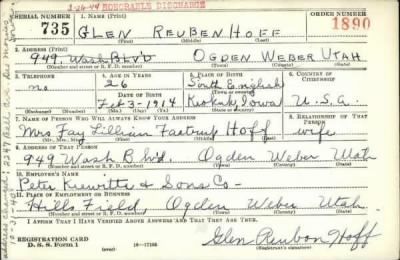 1-26-44 HONORABLE DISCHARGE
SERIAL NUMBER 1. NAME (Print) ORDER NUMBER
735 GLEN REUBEN HOFF 1890
(First) (Middle) (Last)
2. ADDRESS (Print)
949 Wash Blvd OGDEN WEBER UTAH
(Number and street or R. F. D. number) (Town) (County) (State)
3. TELEPHONE 4. AGE IN YEARS 5. PLACE OF BIRTH 6. COUNTRY OF CITIZENSHIP
no 26 South English
DATE OF BIRTH (Town or county)
Feb-3-1914 Keokuk, Iowa U.S.A.
(Exchange) (Number) (Mo.) (Day) (Yr.) (State or country)
7. NAME OF PERSON WHO WILL ALWAYS KNOW YOUR ADDRESS 8. RELATIONSHIP OF THAT PERSON
Mrs Fay Lillian Hoff wife
(Mr., Mrs., Miss) (First) (Middle) (Last)
9. ADDRESS OF THAT PERSON
949 Wash Blvd. Ogden Weber Utah
(Number and street or R. F. D. number) (Town) (County) (State)
10. EMPLOYER'S NAME
Peter Kiewitte & Sons Co-
11. PLACE OF EMPLOYMENT OR BUSINESS
Hills Field Ogden Weber Utah
(Number and street or R. F. D. number) (Town) (County) (State)
I AFFIRM THAT I HAVE VERIFIED ABOVE ANSWERS AND THAT THEY ARE TRUE.
REGISTRATION CARD
D. S. S. FORM 1 16-17105 Glen Reuben Hoff
(Registrant's signature)